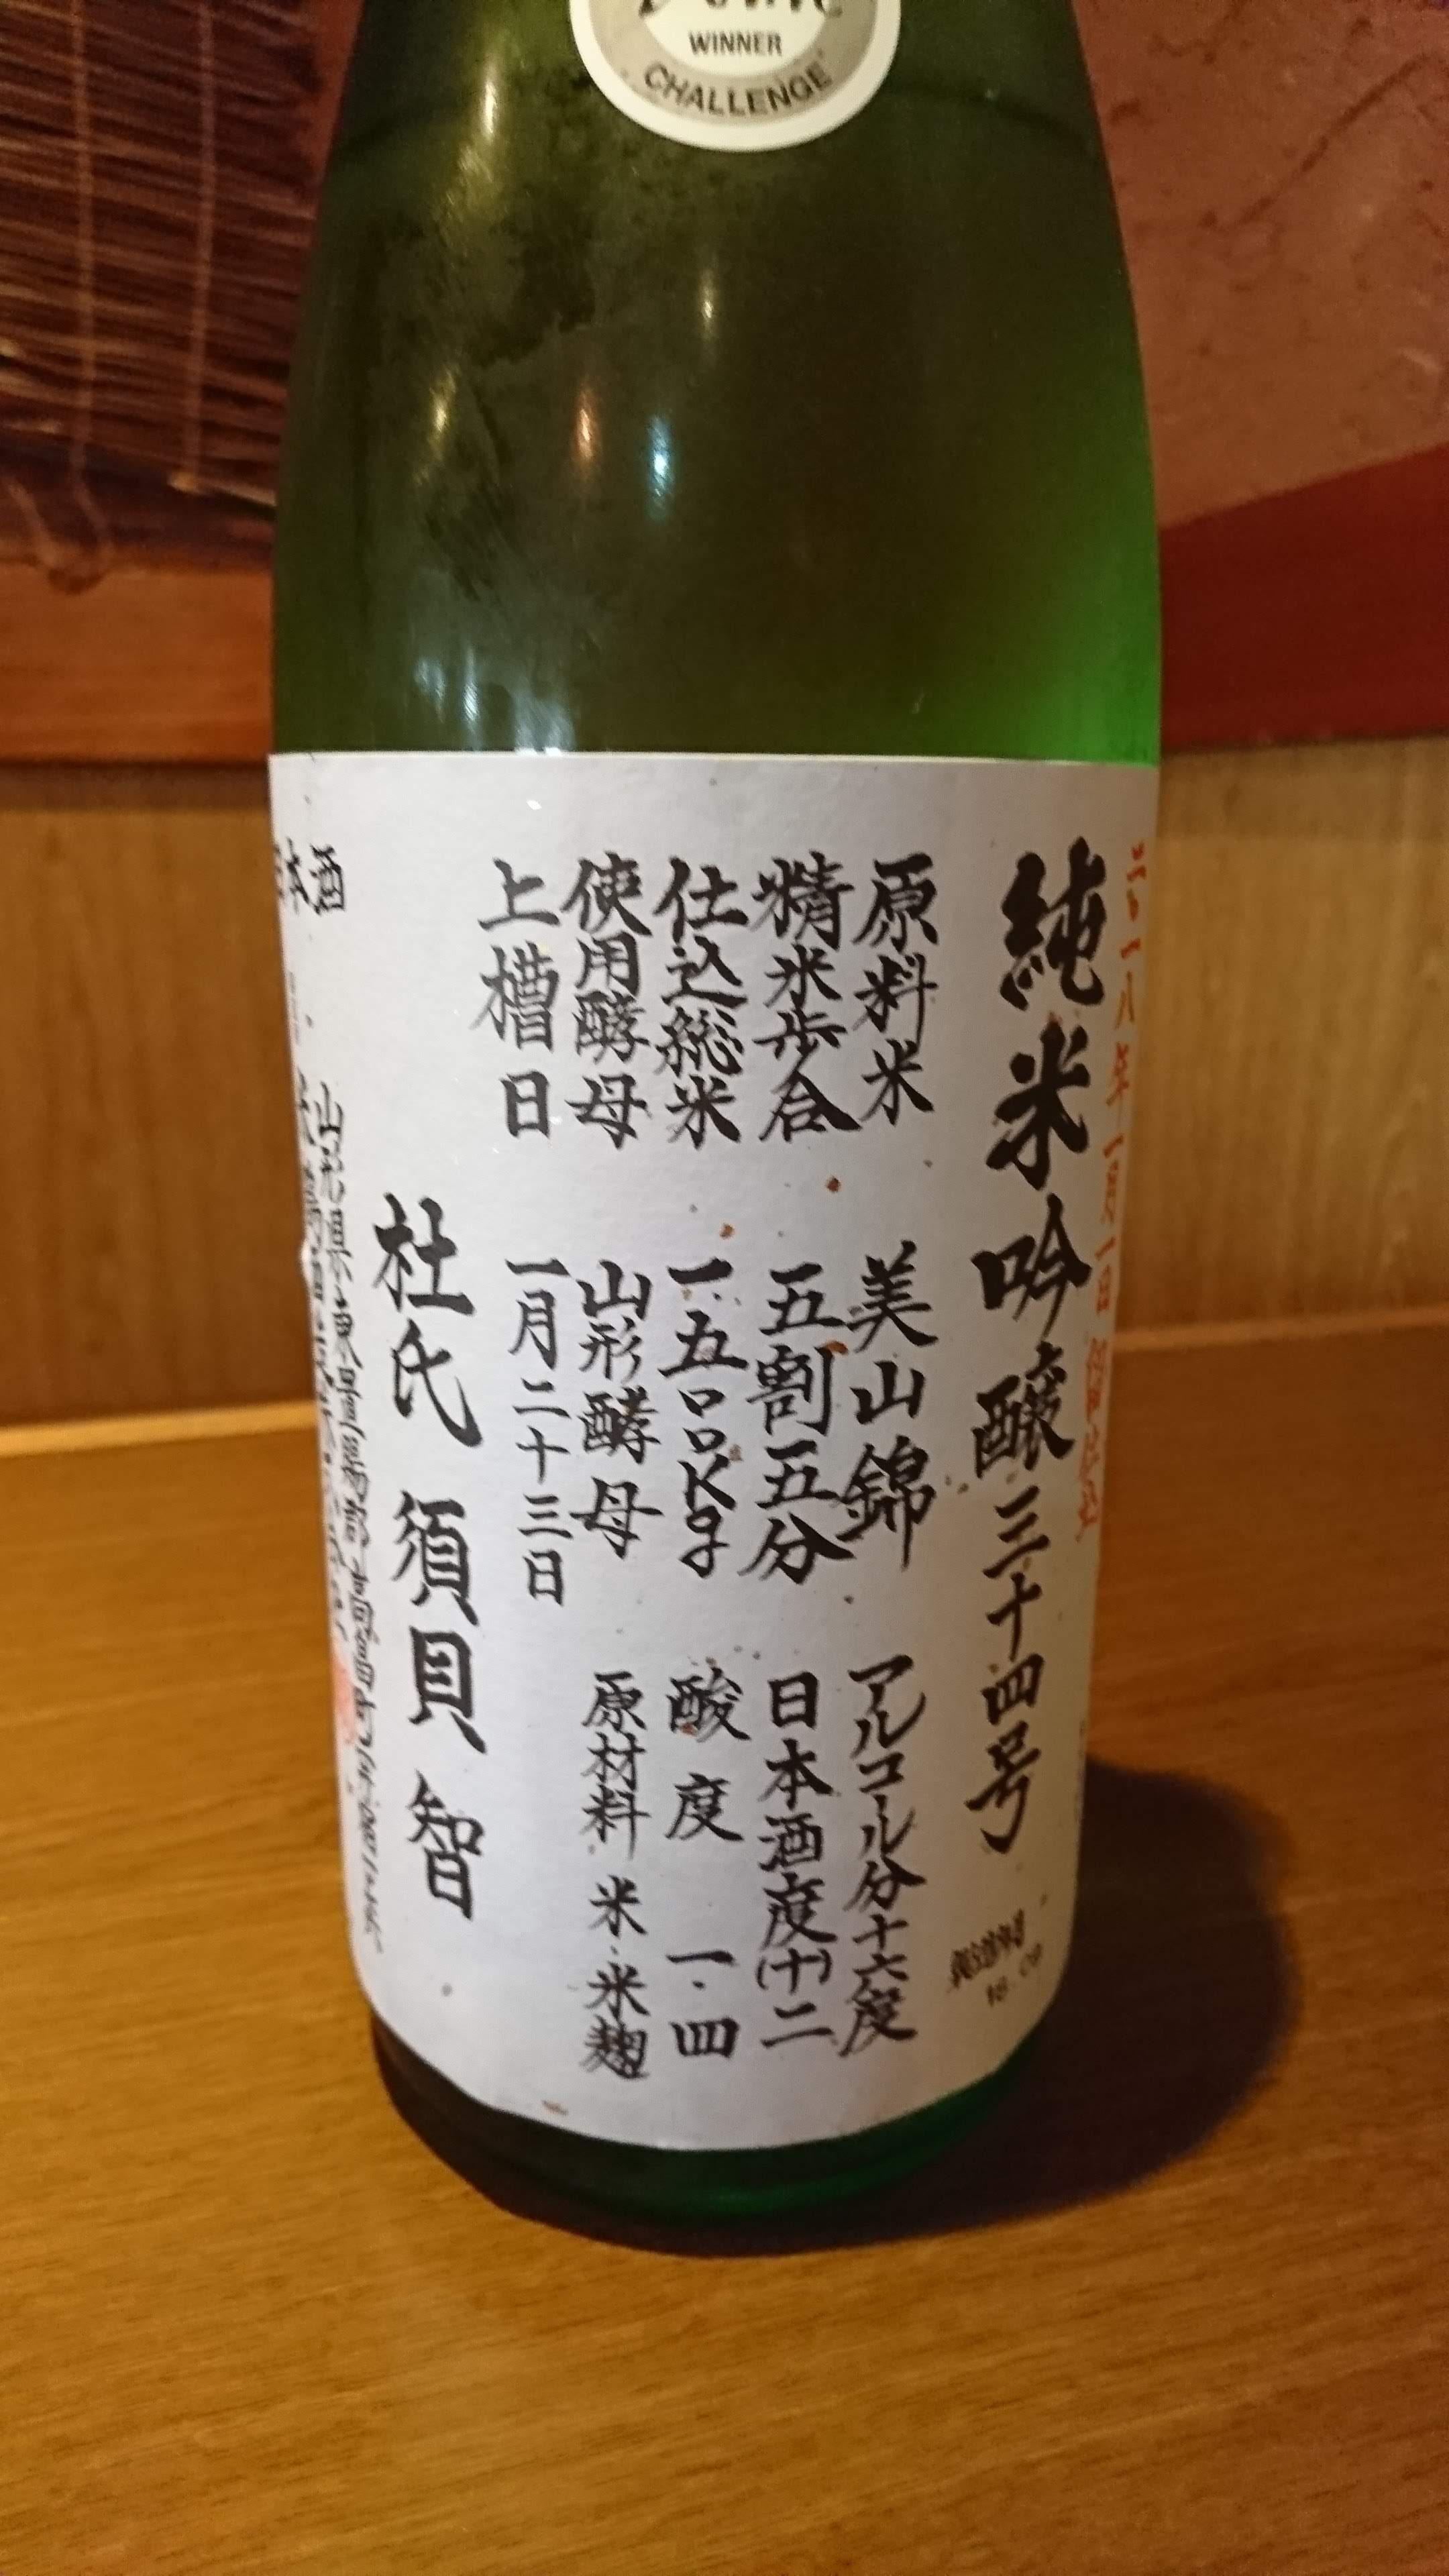 WINNER
CHALLENGE
純米吟醸三十四号
製造年月
原料米 美山錦 アルコール分十六度
精米歩合 五割五分 日本酒度(十)二
仕込総米 一五〇〇Kg 酸度 一・四
使用酵母 山形酵母 原材料 米・米麹
上槽日 一月二十三日
杜氏 須貝 智
本酒
山形県東置賜郡高畠町